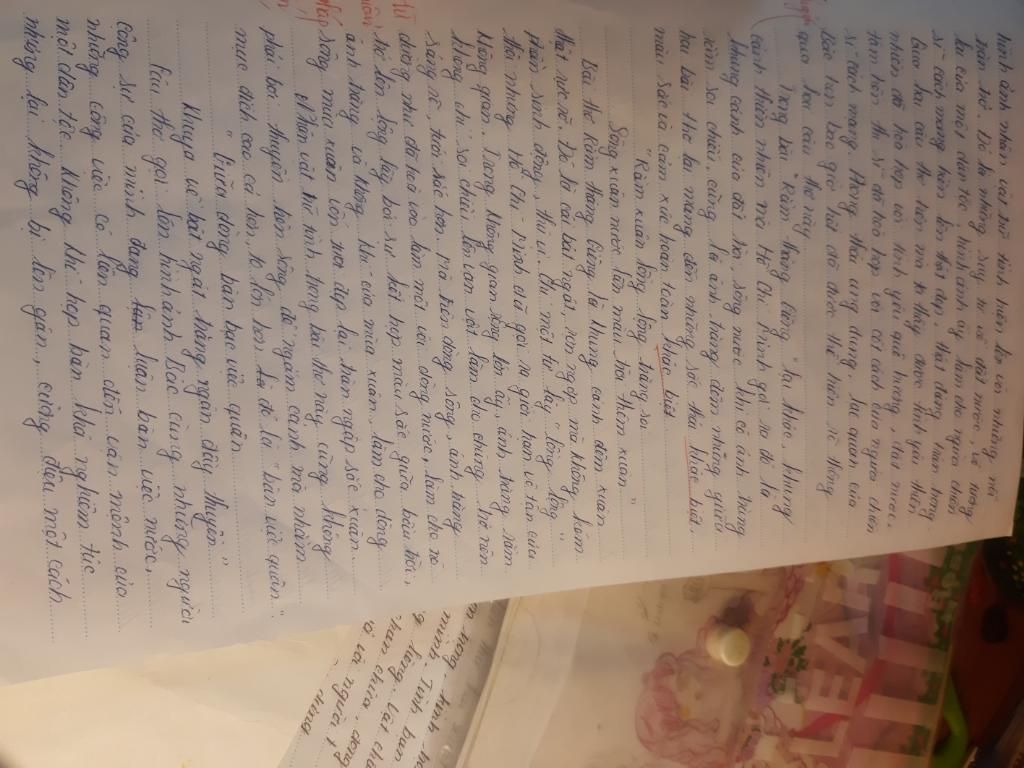 hình ảnh nhân vật trữ tình hiện lên với những nỗi
trăn trở. Đó là những suy tư về đất nước, về tương
lai của một dân tộc, hình ảnh ấy làm cho người chiến
sĩ cách mạng hiện lên thật đẹp, thật đáng trân trọng
Qua hai câu thơ trên ta thấy được hình yên thiên
nhiên đã hòa hợp với tình yêu quê hương, đất nước,
tâm hồn thi sĩ đã hòa hợp với cốt cách của người chiến
sĩ cách mạng. Phong thái ung dung, lạc quan của
Bác hơn bao giờ hết đã được thể hiện rõ thông
qua hai câu thơ này.
Trong bài "Rằm tháng Giêng" lại khác, khung
cảnh thiên nhiên mà Hồ Chí Minh gợi ra đó là
khung cảnh của đất trời, sông nước khi có ánh trăng
rằm soi chiếu, cũng là ánh trăng đêm nhưng giữa
hai bài thơ lại mang đến những sắc thái khác biệt
màu sắc và cảm xúc hoàn toàn khác biệt.
"Rằm xuân lồng lộng trăng soi
Sông xuân nước lẫn màu trời thêm xuân."
Bài thơ Rằm tháng Giêng là khung cảnh đêm xuân
thật rực rỡ. Đó là cái bát ngát, rợn ngợp mà không kém
phần sinh động, thú vị. Chỉ một từ láy "lồng lộng"
thôi nhưng Hồ Chí Minh đã gợi ra giới hạn vô tận của
không gian. Trong không gian rộng lớn ấy, ánh trăng rằm
không chỉ soi chiếu lên cảnh vật làm cho chúng trở nên
sáng rõ, trong sắc hơn. Mà trên dòng sông, ánh trăng
dường như đã hoà vào làm một với dòng nước, làm cho nó
trở lên lộng lẫy bởi sự kết hợp màu sắc giữa bầu trời,
ánh trăng và không khí của mùa xuân, làm cho dòng
sông mùa xuân vốn tươi đẹp lại tràn ngập sắc xuân.
Nhân vật trữ tình trong bài thơ này cũng không
phải bơi thuyền trên sông để ngắm cảnh mà nhằm
mục đích cao cả hơn, to lớn hơn là đó là "bàn việc quân".
"Giữa dòng bàn bạc việc quân
Khuya về bát ngát trăng ngân đầy thuyền."
Câu thơ gợi lên hình ảnh Bác cùng những người
cộng sự của mình đang luận bàn việc nước,
những công việc có liên quan đến vận mệnh của
một dân tộc. Không khí họp bàn khá nghiêm túc
nhưng lại không bị lên gân, cường điệu một cách